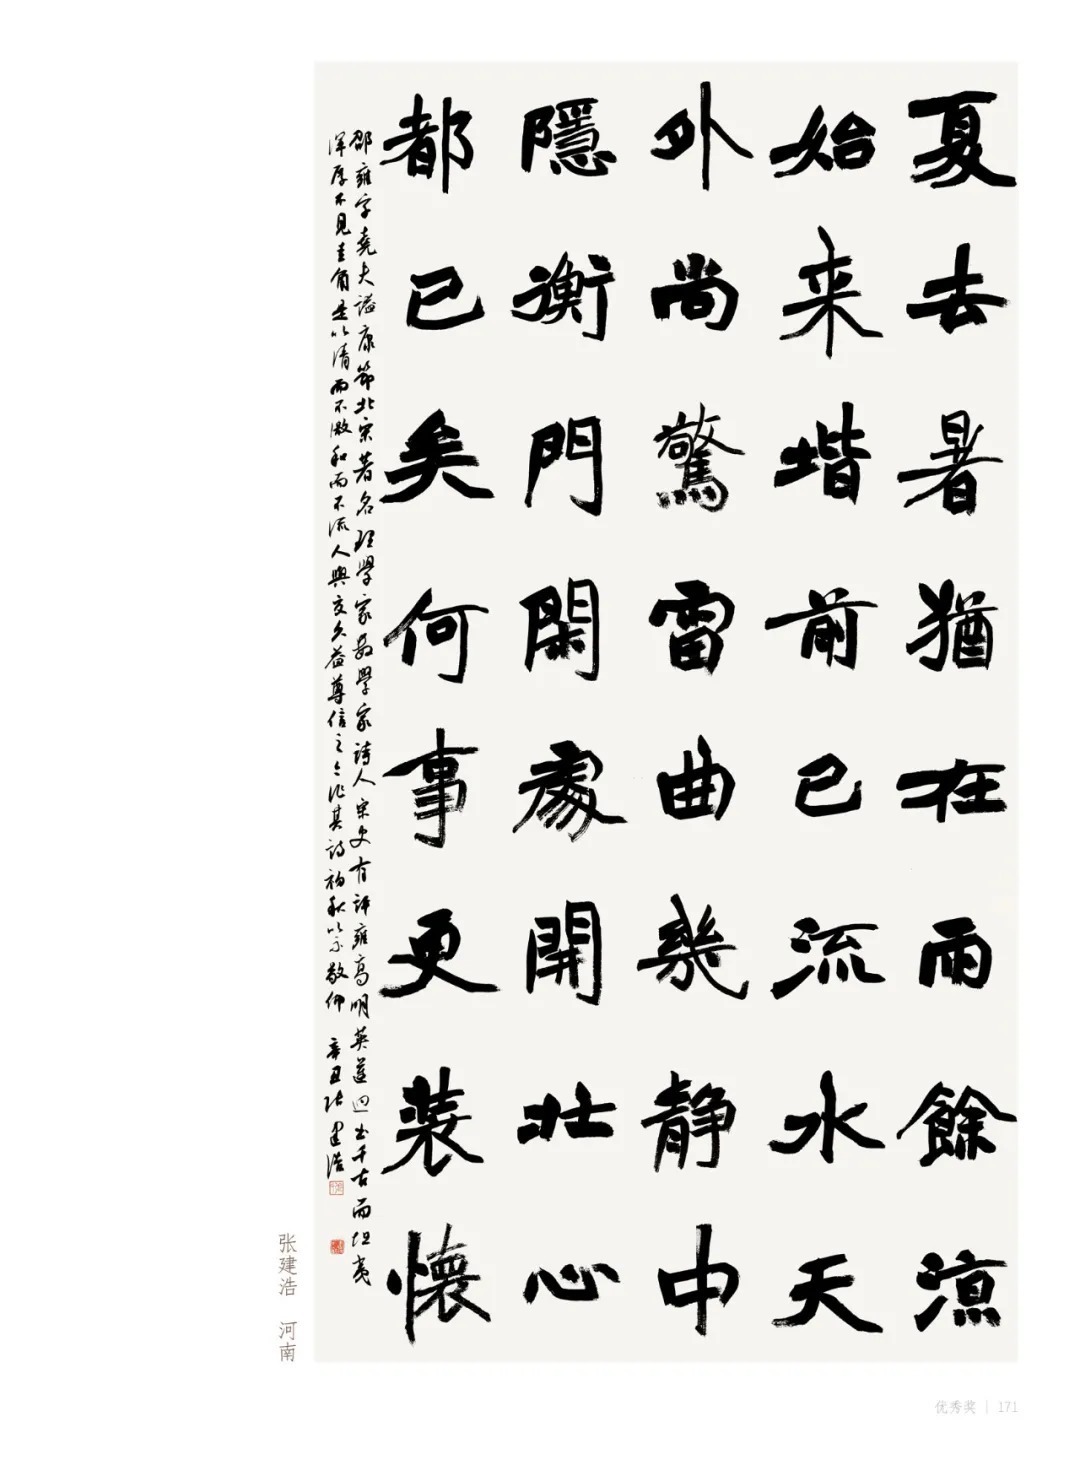 夏去暑猶在雨餘涼
始来堦前已流水天
外尚驚雷曲幾静中
隱衡門閑處開壯心
都已矣何事更裝懷
邵雍字堯夫谥康節北宋著名理學家數學家詩人宋史有評雍高明英邁迥出千古而坦夷
渾厚不見圭角是以清而不激和而不流人與交久益尊信之今作其詩初秋以示敬仰 辛丑张建浩
张建浩 河南
优秀奖 | 171